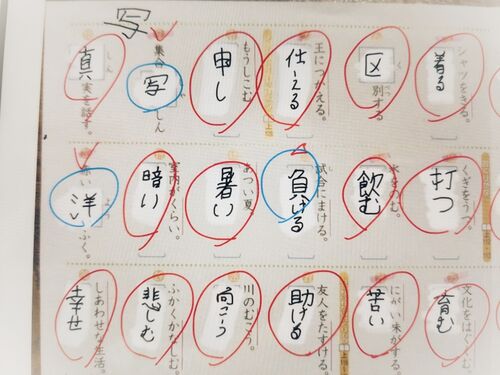 写
シャツをきる。
着る
く
区別する
王につかえる。
仕える
もうしこむ
申し
集合写しん
しん
真実を話す。
くぎをうつ。
打つ
水をのむ。
飲む
試合にまける。
負ける
あつい夏
暑い
室内がくらい。
暗い
よう
赤い洋ふく。
文化をはぐくむ。
育む
にがい味がする。
苦い
友人をたすける。
助ける
川のむこう。
向こう
ふかくかなしむ。
悲しむ
しあわせな生活。
幸せ